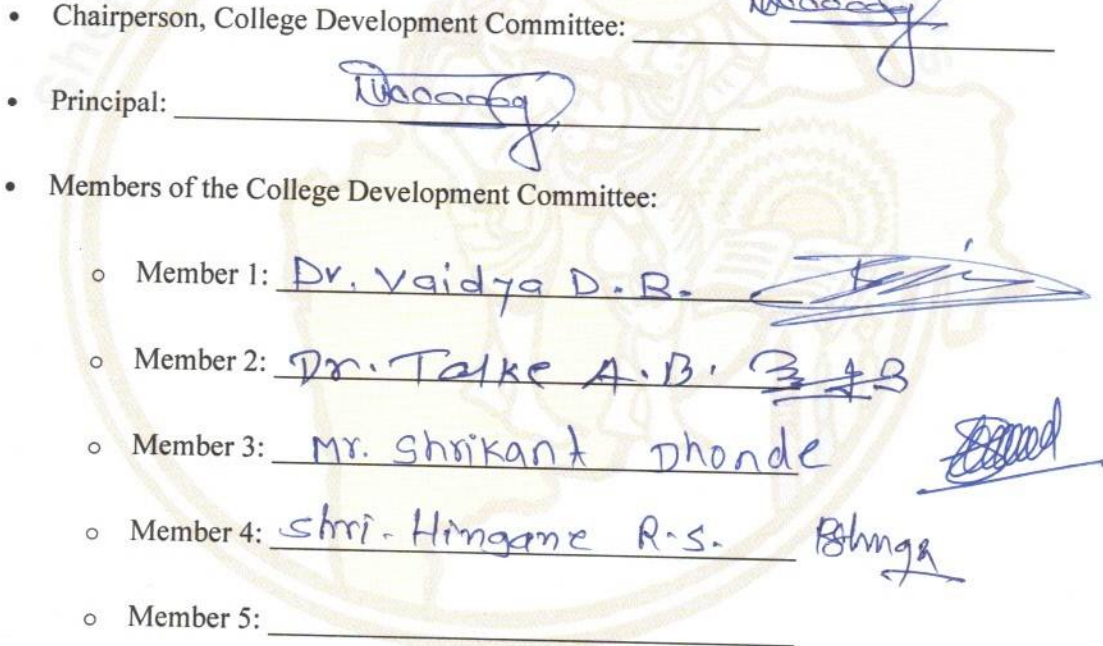 • Chairperson, College Development Committee:
• Principal:
• Members of the College Development Committee:
○ Member 1: Dr. Vaidya D. B.
○ Member 2: Dr. Talke A. B.
○ Member 3: Mr. Shrikant Dhonde
○ Member 4: Shri. Hingane R.S.
○ Member 5: